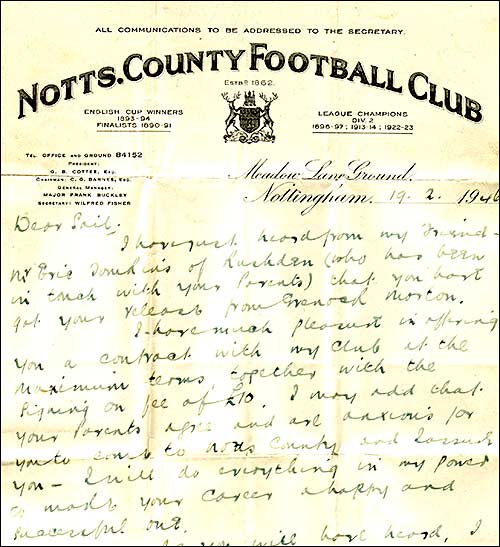 ALL COMMUNICATIONS TO BE ADDRESSED TO THE SECRETARY.
NOTTS. COUNTY FOOTBALL CLUB
ESTBD 1862.
ENGLISH CUP WINNERS
1893-94
FINALISTS 1890-91
LEAGUE CHAMPIONS
DIV. 2
1896-97; 1913-14; 1922-23
TEL. OFFICE AND GROUND 84152
PRESIDENT:
G. B. COTTEE, ESQ.
CHAIRMAN: C. G. BARNES, ESQ.
GENERAL MANAGER:
MAJOR FRANK BUCKLEY
SECRETARY: WILFRED FISHER
Meadow Lane Ground.
Nottingham, 19. 2. 1946
Dear
I have just heard from my Friend -
Mr Eric Tomkins of Rushden (who has been
in touch with your Parents) that you have
got your release from Greenock Morton.
I have much pleasure in offering
you a contract with my club at the
maximum terms, together with the
signing on fee of £10. I may add that
your Parents agree and are anxious for
you to come to Notts County and I assure
you - I will do everything in my power
to make your career a happy and
successful one.
you will have heard, I